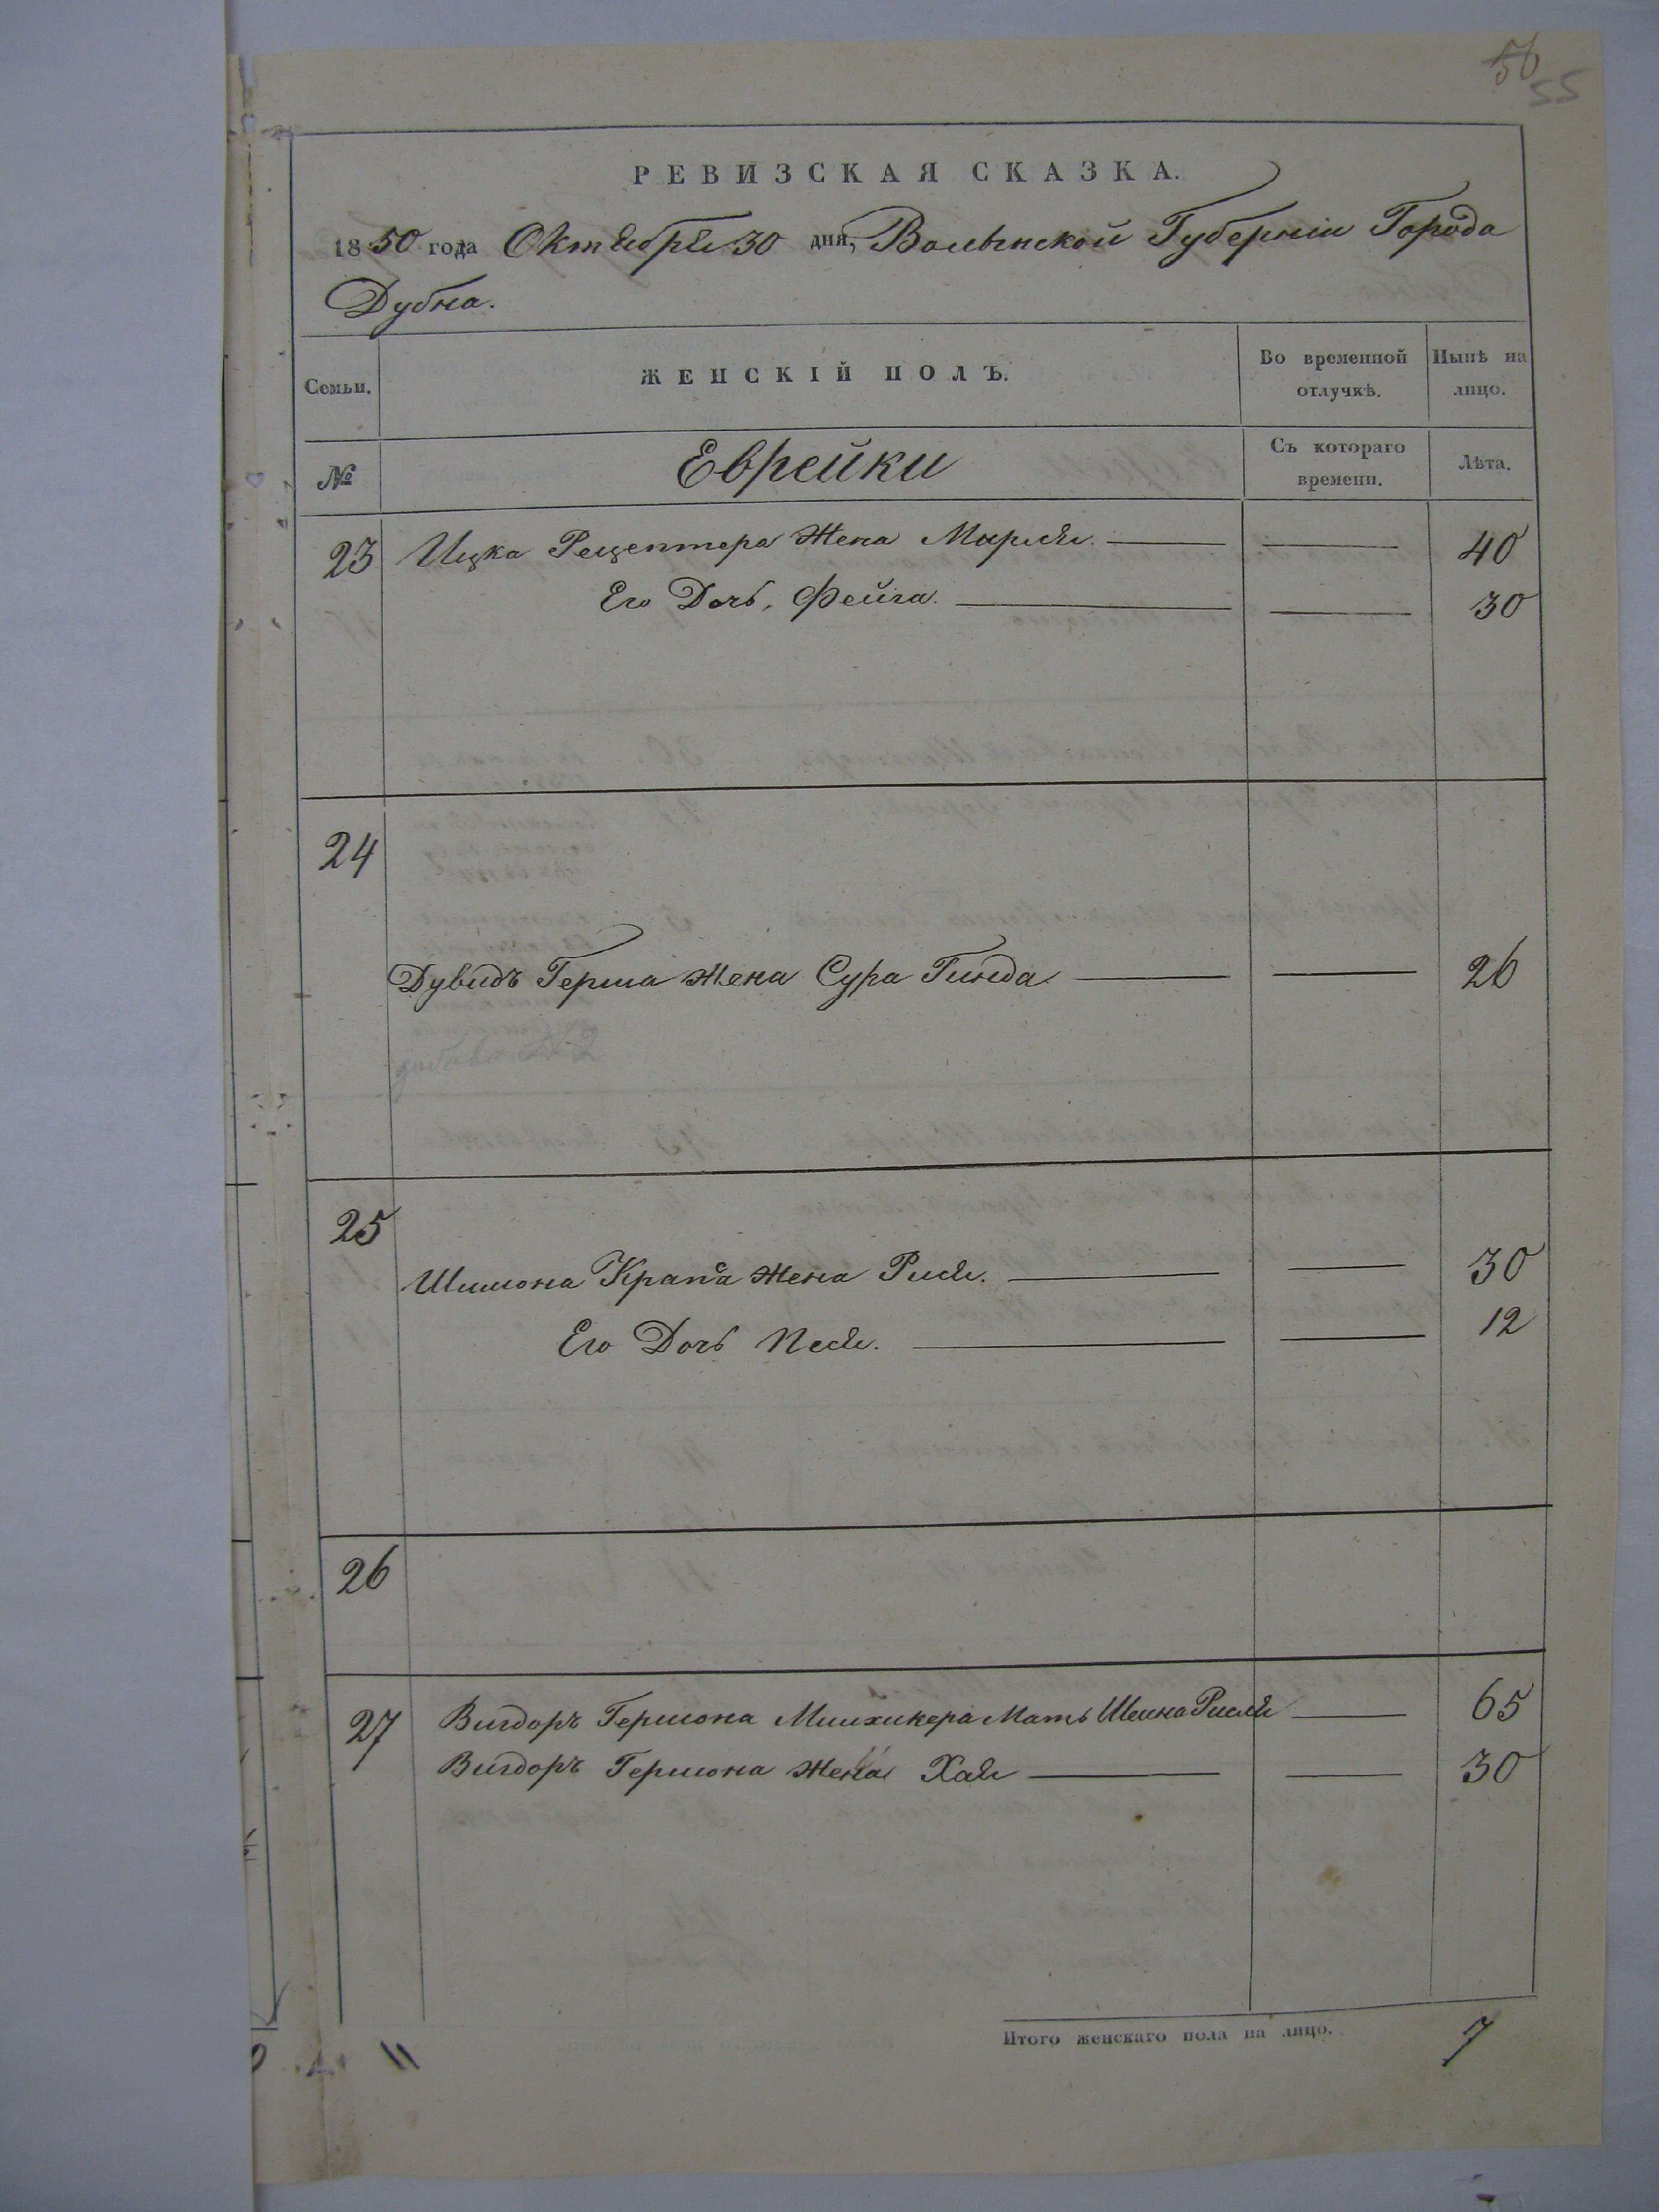 56
55
РЕВИЗСКАЯ СКАЗКА.
1850 года Октября 30 дня, Волынской Губерніи Города
Дубна.
Семьи.
ЖЕНСКІЙ ПОЛЪ.
Во временной отлучкѣ.
Нынѣ на лицо.
№
Еврейки
Съ котораго времени.
Лѣта.
23 Ицка Рецептера Жена Мирля. — — 40
Его Дочь, Фейга. — — 30
24
Дувидъ Герша Жена Сура Гинда — — 26
25
Шимона Крапа Жена Рися. — — 30
Его Дочь Песя. — — 12
26
27 Вигдоръ Гершона Минхикера Мать Шеина Рисля — 65
Вигдоръ Гершона Жена Хая — — 30
Итого женскаго пола на лицо. 7